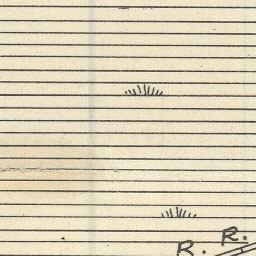 R. R.